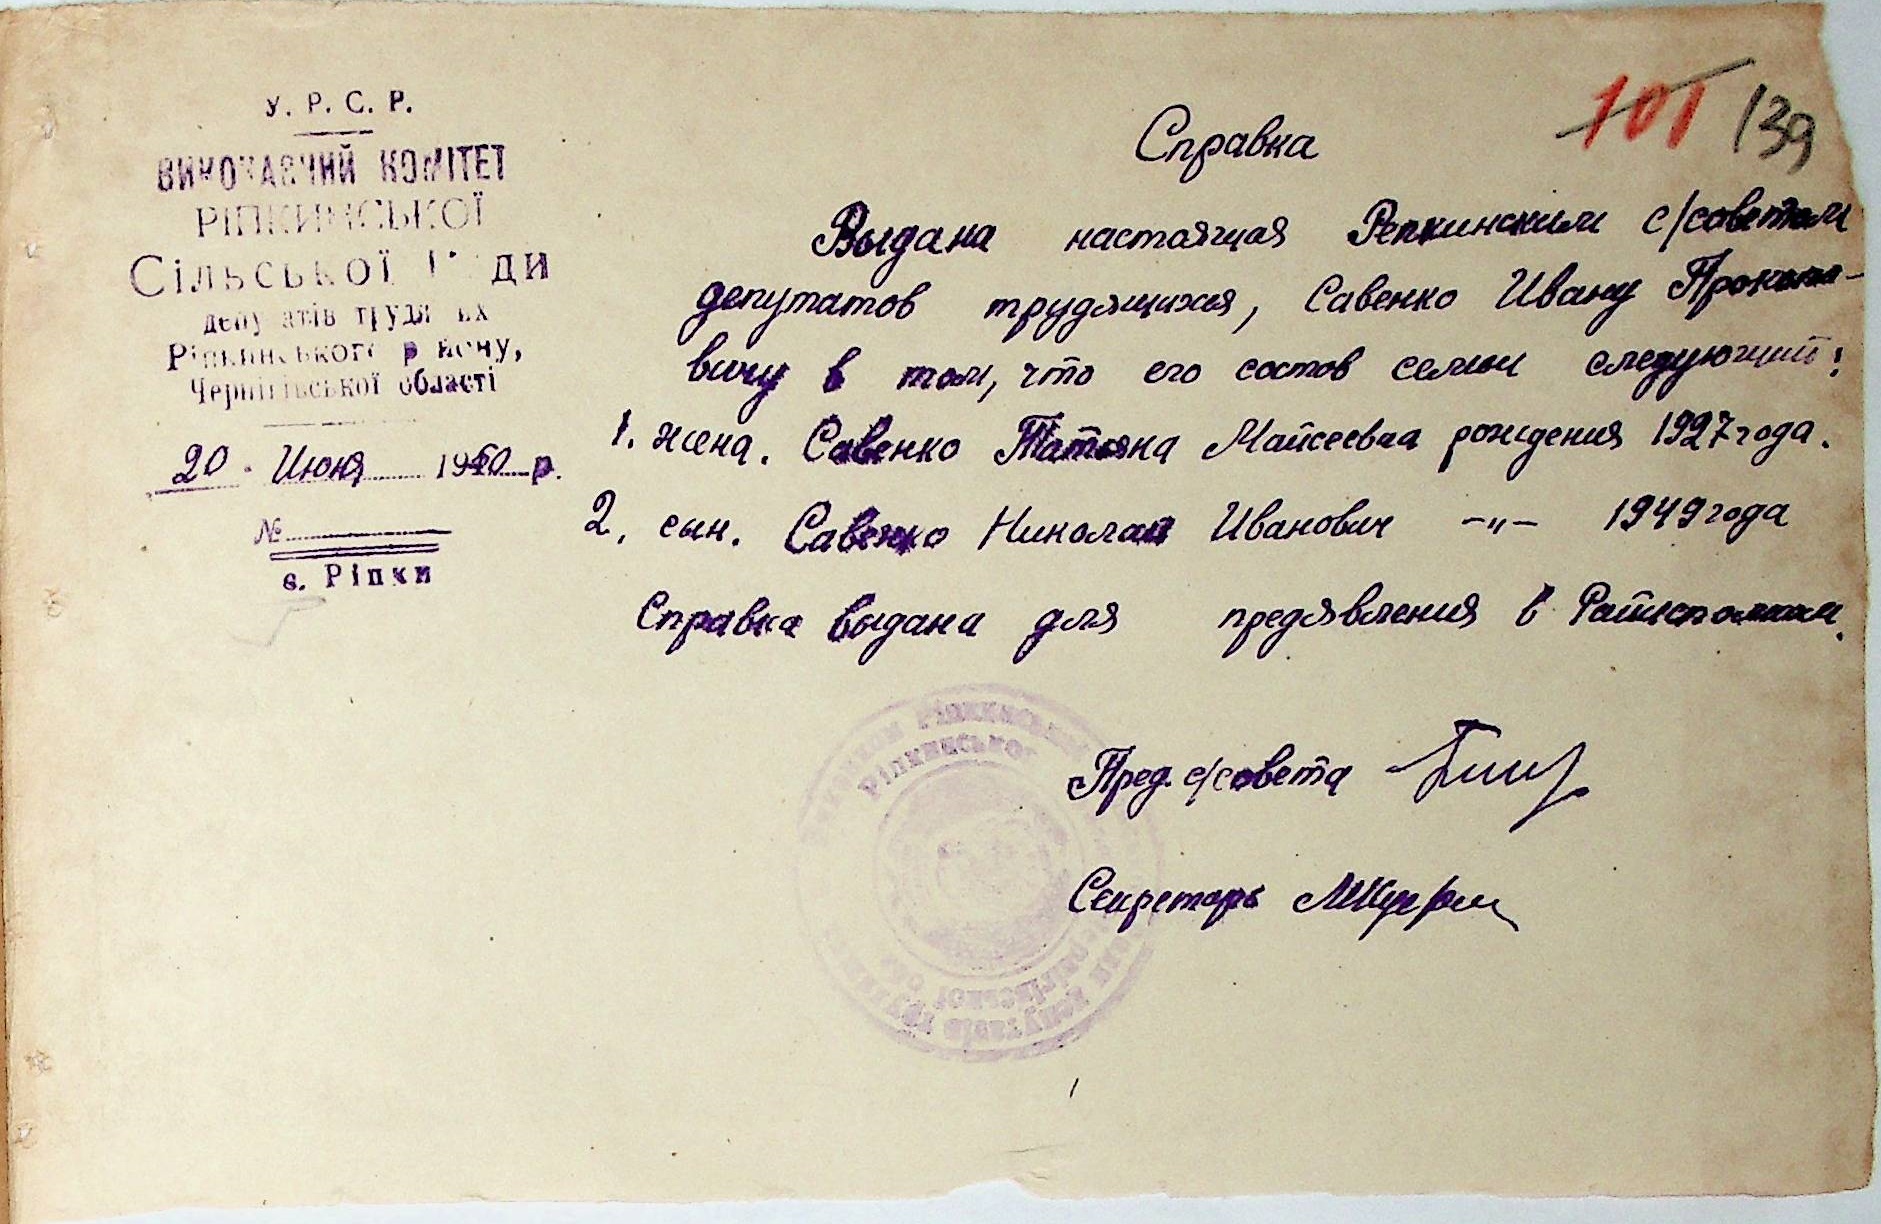 У. Р. С. Р.
ВИКОНАВЧИЙ КОМІТЕТ
РІПКИНСЬКОЇ
СІЛЬСЬКОЇ Ради
депутатів трудящих
Ріпкинського району,
Чернігівської області
20 · Июня 1950 р.
№
с. Ріпки
101 139
Справка
Выдана настоящая Репкинским с/советом
депутатов трудящихся, Савенко Ивану Прокопо-
вичу в том, что его состов семьи следующий:
1. жена. Савенко Татьяна Майсеевна рождения 1927 года.
2. сын. Савенко Николай Иванович -"- 1949 года
Справка выдана для предявления в Райисполком.
Пред. с/совета
Секретарь
Ріпкинської
Ріпкинського
депутатів трудящих